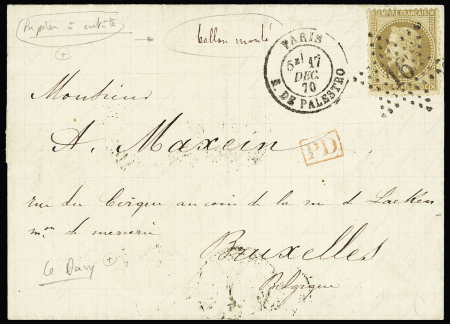 Papier à entête
ballon monté
PARIS
5E/ 17
DEC.
70
R. DE PALESTRO
16
Monsieur
A. Maxein
PD
rue du Cirque au coin de la rue de Laeken
mon de mercerie
Bruxelles
Le Davy
Belgique